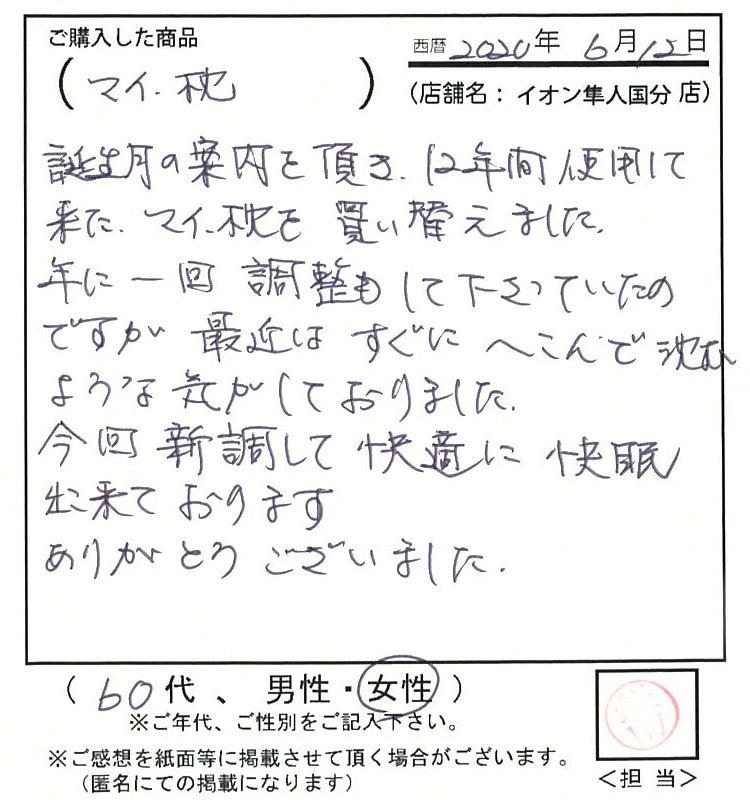 ご購入した商品
西暦 2020年 6月12日
(マイ.枕)
(店舗名：イオン隼人国分 店)
誕生月の案内を頂き、12年間使用して
来た、マイ、枕を買い替えました。
年に一回 調整もして下さっていたの
ですが 最近は すぐに へこんで沈む
ような気がしておりました。
今回 新調して 快適に 快眠
出来ております
ありがとうございました.
(60代、男性・女性)
※ご年代、ご性別をご記入下さい。
※ご感想を紙面等に掲載させて頂く場合がございます。
(匿名にての掲載になります)
＜担 当＞